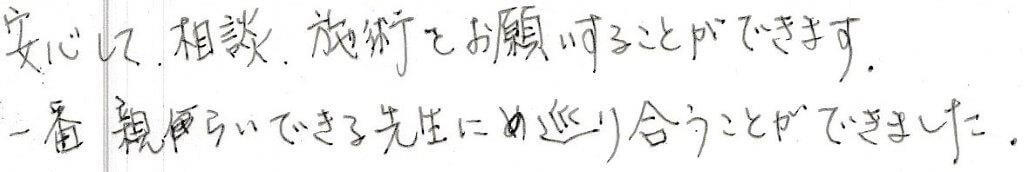 安心して、相談、施術をお願いすることができます。
一番 親らいできる先生にめ巡り合うことができました。